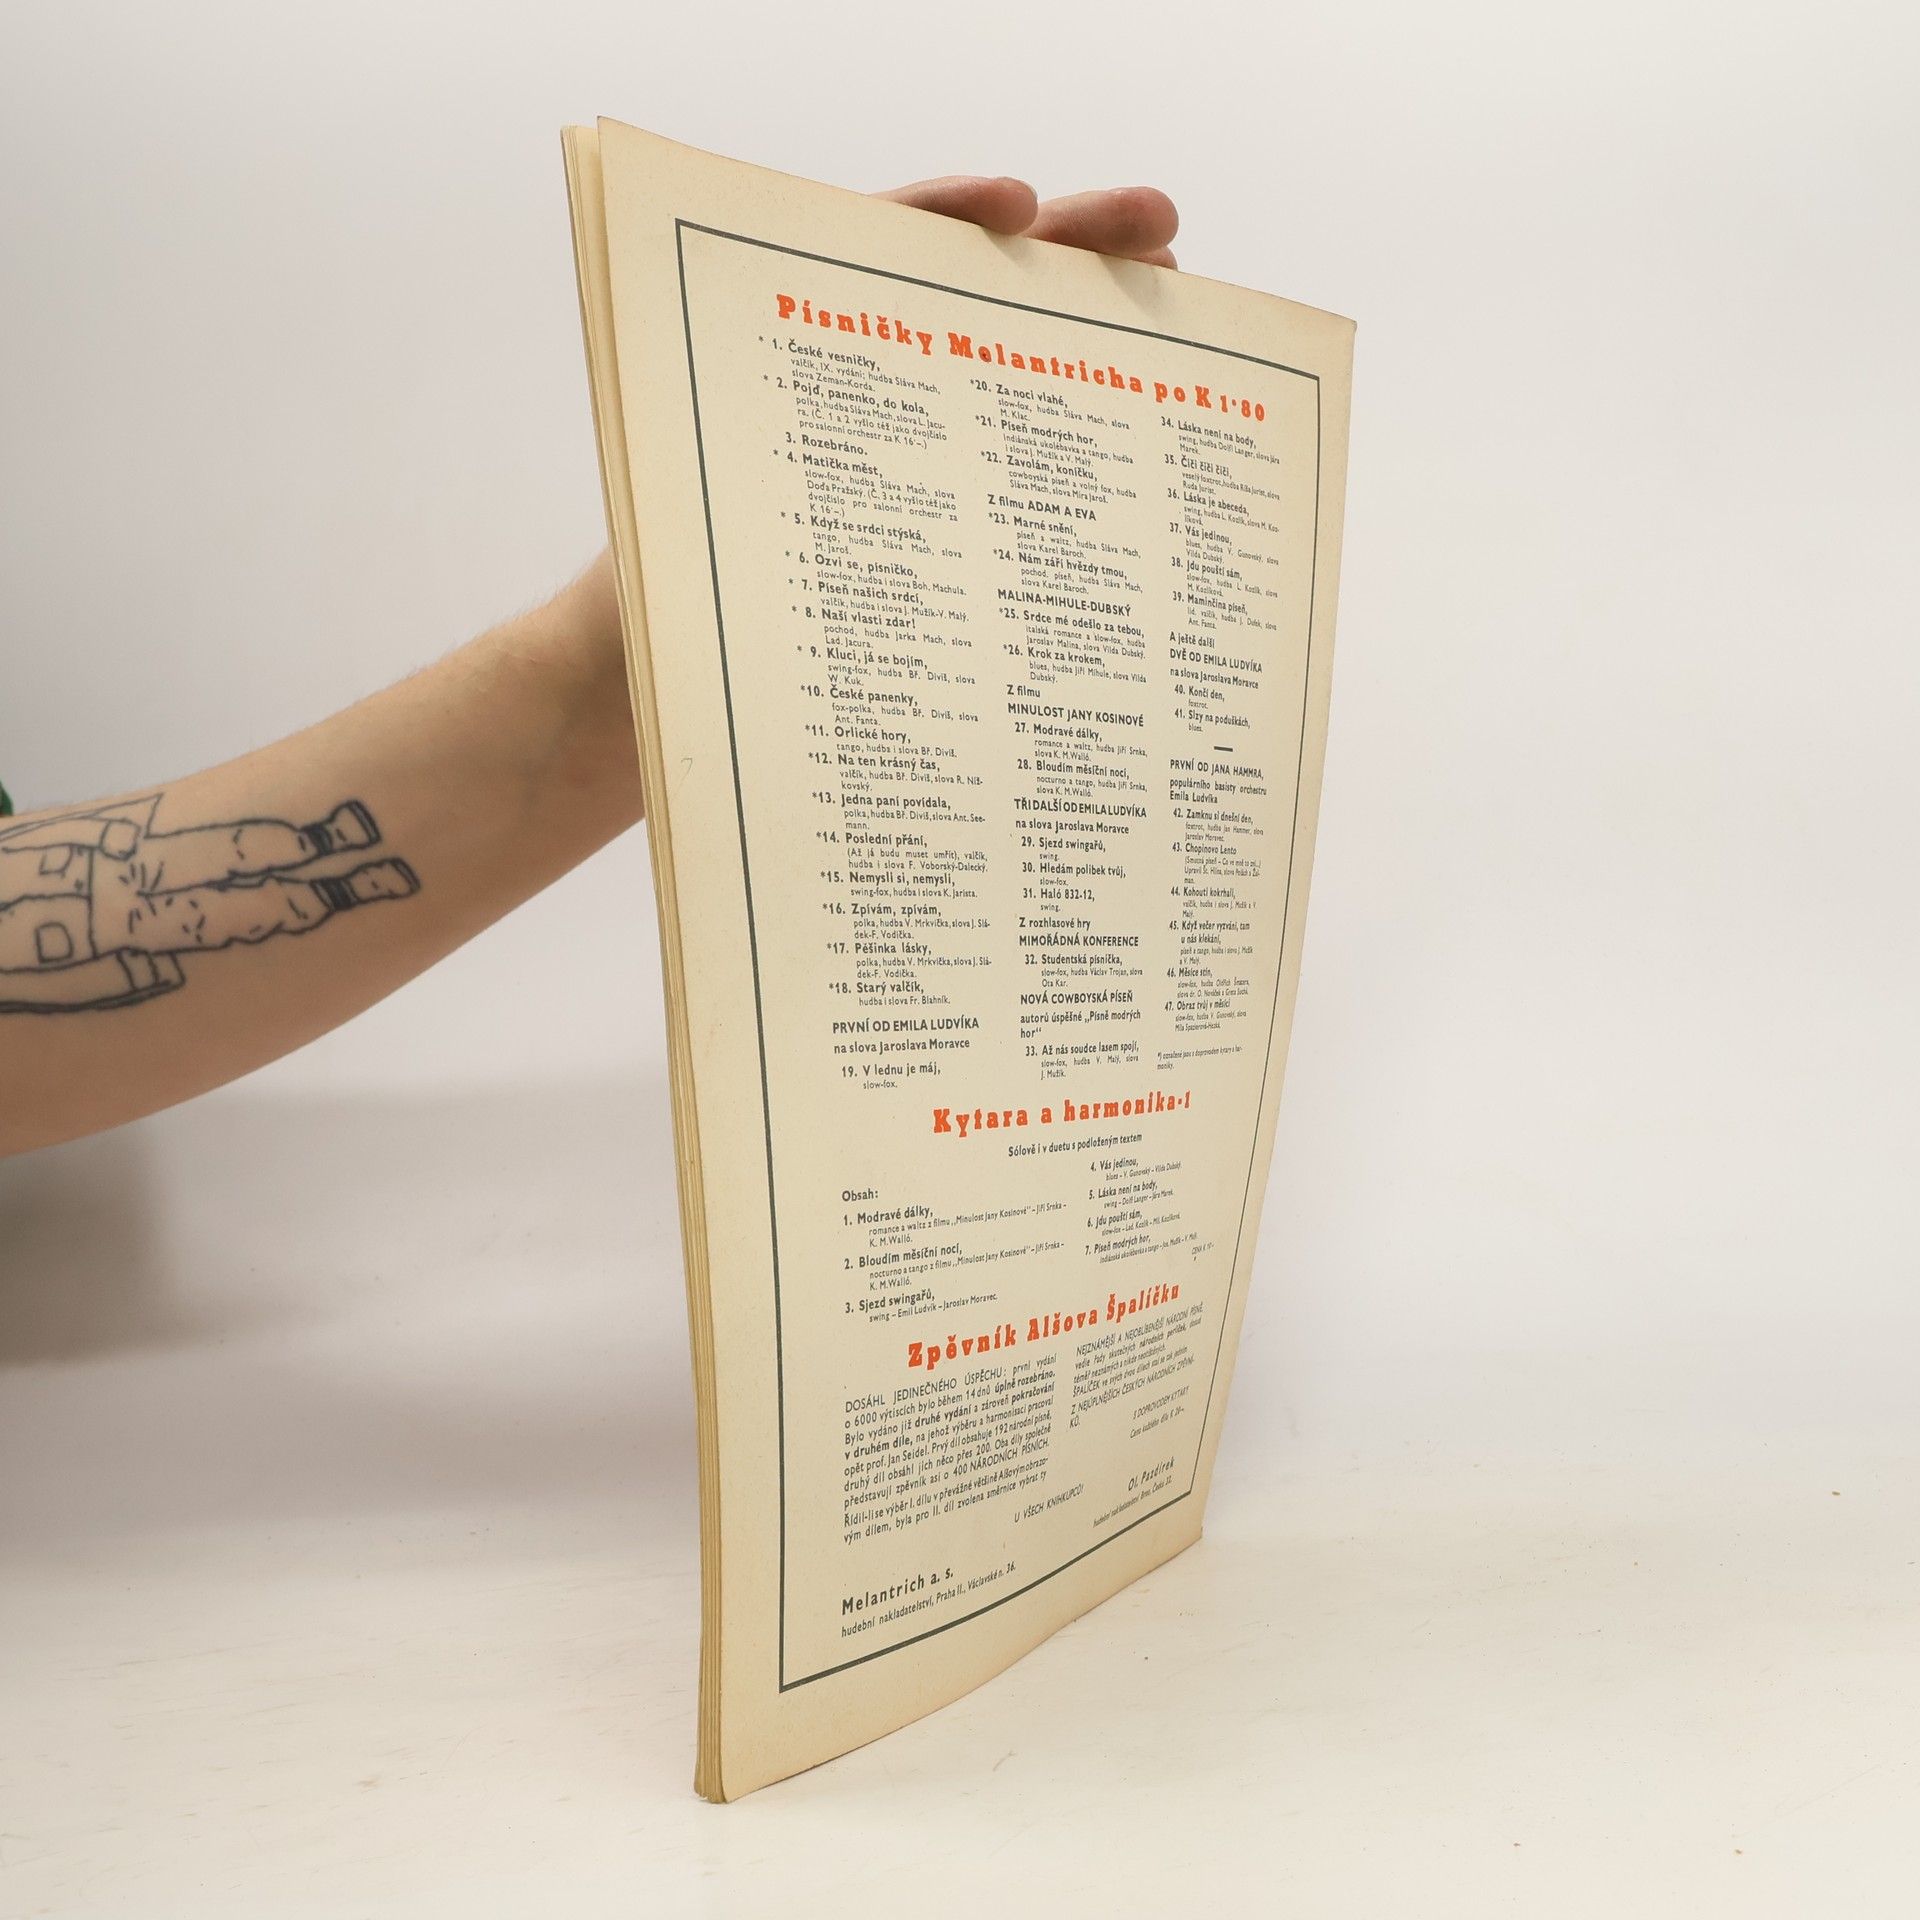 Písničky Melantricha po K 1·80
* 1. České vesničky,
valčík, IX. vydání; hudba Sláva Mach,
slova Zeman-Korda.
* 2. Pojď, panenko, do kola,
polka, hudba Sláva Mach, slova L. Jacu-
ra. (Č. 1 a 2 vyšlo též jako dvojčíslo
pro salonní orchestr za K 16·–.)
3. Rozebráno.
* 4. Matička měst,
slow-fox, hudba Sláva Mach, slova
Doďa Pražský. (Č. 3 a 4 vyšlo též jako
dvojčíslo pro salonní orchestr za
K 16·–.)
* 5. Když se srdci stýská,
tango, hudba Sláva Mach, slova
M. Jaroš.
* 6. Ozvi se, písničko,
slow-fox, hudba i slova Boh. Machula.
* 7. Píseň našich srdcí,
valčík, hudba i slova J. Mužík-V. Malý.
* 8. Naší vlasti zdar!
pochod, hudba Jarka Mach, slova
Lad. Jacura.
* 9. Kluci, já se bojím,
swing-fox, hudba Bř. Diviš, slova
W. Kuk.
*10. České panenky,
fox-polka, hudba Bř. Diviš, slova
Ant. Fanta.
*11. Orlické hory,
tango, hudba i slova Bř. Diviš.
*12. Na ten krásný čas,
valčík, hudba Bř. Diviš, slova R. Niš-
kovský.
*13. Jedna paní povídala,
polka, hudba Bř. Diviš, slova Ant. See-
mann.
*14. Poslední přání,
(Až já budu muset umřít), valčík,
hudba i slova F. Voborský-Dalecký.
*15. Nemysli si, nemysli,
swing-fox, hudba i slova K. Jarista.
*16. Zpívám, zpívám,
polka, hudba V. Mrkvička, slova J. Slá-
dek-F. Vodička.
*17. Pěšinka lásky,
polka, hudba V. Mrkvička, slova J. Slá-
dek-F. Vodička.
*18. Starý valčík,
hudba i slova Fr. Blahník.
PRVNÍ OD EMILA LUDVÍKA
na slova Jaroslava Moravce
19. V lednu je máj,
slow-fox.
*20. Za noci vlahé,
slow-fox, hudba Sláva Mach, slova
M. Klac.
*21. Píseň modrých hor,
indiánská ukolébavka a tango, hudba
i slova J. Mužík a V. Malý.
*22. Zavolám, koníčku,
cowboyská píseň a volný fox, hudba
Sláva Mach, slova Mira Jaroš.
Z filmu ADAM A EVA
*23. Marné snění,
píseň a waltz, hudba Sláva Mach,
slova Karel Baroch.
*24. Nám září hvězdy tmou,
pochod. píseň, hudba Sláva Mach,
slova Karel Baroch.
MALINA-MIHULE-DUBSKÝ
*25. Srdce mé odešlo za tebou,
italská romance a slow-fox, hudba
Jaroslav Malina, slova Vilda Dubský.
*26. Krok za krokem,
blues, hudba Jiří Mihule, slova Vilda
Dubský.
Z filmu
MINULOST JANY KOSINOVÉ
27. Modravé dálky,
romance a waltz, hudba Jiří Srnka,
slova K. M. Walló.
28. Bloudím měsíční nocí,
nocturno a tango, hudba Jiří Srnka,
slova K. M. Walló.
TŘI DALŠÍ OD EMILA LUDVÍKA
na slova Jaroslava Moravce
29. Sjezd swingařů,
swing.
30. Hledám polibek tvůj,
slow-fox.
31. Haló 832-12,
swing.
Z rozhlasové hry
MIMOŘÁDNÁ KONFERENCE
32. Studentská písnička,
slow-fox, hudba Václav Trojan, slova
Ota Kar.
NOVÁ COWBOYSKÁ PÍSEŇ
autorů úspěšné „Písně modrých
hor“
33. Až nás soudce lasem spojí,
slow-fox, hudba V. Malý, slova
J. Mužík.
34. Láska není na body,
swing, hudba Dolfi Langer, slova Jára
Marek.
35. Čiči čiči čiči,
veselý foxtrot, hudba Ríša Jurist, slova
Ruda Jurist.
36. Láska je abeceda,
swing, hudba L. Kozlík, slova M. Koz-
líková.
37. Vás jedinou,
blues, hudba V. Gunovský, slova
Vilda Dubský.
38. Jdu pouští sám,
slow-fox, hudba L. Kozlík, slova
M. Kozlíková.
39. Maminčina píseň,
lid. valčík, hudba J. Dufek, slova
Ant. Fanta.
A ještě další
DVĚ OD EMILA LUDVÍKA
na slova Jaroslava Moravce
40. Končí den,
foxtrot.
41. Slzy na poduškách,
blues.
PRVNÍ OD JANA HAMMRA,
populárního basisty orchestru
Emila Ludvíka
42. Zamknu si dnešní den,
foxtrot, hudba Jan Hammer, slova
Jaroslav Moravec.
43. Chopinovo Lento
(Smutná píseň – Co ve mně to zní...)
Upravil St. Hlína, slova Polách a Žal-
man.
44. Kohouti kokrhali,
valčík, hudba i slova J. Mužík a V.
Malý.
45. Když večer vyzvání, tam
u nás klekání,
píseň a tango, hudba i slova J. Mužík
a V. Malý.
46. Měsíce stín,
slow-fox, hudba Oldřich Šmatera,
slova dr. O. Nováček a Greta Suchá.
47. Obraz tvůj v měsíci
slow-fox, hudba V. Gunovský, slova
Míla Spazierová-Hezká.
*) označené jsou s doprovodem kytary a har-
moniky.
Kytara a harmonika-1
Sólově i v duetu s podloženým textem
Obsah:
1. Modravé dálky,
romance a waltz z filmu „Minulost Jany Kosinové“ – Jiří Srnka –
K. M. Walló.
2. Bloudím měsíční nocí,
nocturno a tango z filmu „Minulost Jany Kosinové“ – Jiří Srnka –
K. M. Walló.
3. Sjezd swingařů,
swing – Emil Ludvík – Jaroslav Moravec.
4. Vás jedinou,
blues – V. Gunovský – Vilda Dubský.
5. Láska není na body,
swing – Dolfi Langer – Jára Marek.
6. Jdu pouští sám,
slow-fox – Lad. Kozlík – Mil. Kozlíková.
7. Píseň modrých hor,
indiánská ukolébavka a tango – Jos. Mužík – V. Malý.
CENA K 10·–
Zpěvník Alšova Špalíčku
DOSÁHL JEDINEČNÉHO ÚSPĚCHU: první vydání
o 6000 výtiscích bylo během 14 dnů úplně rozebráno.
Bylo vydáno již druhé vydání a zároveň pokračování
v druhém díle, na jehož výběru a harmonisaci pracoval
opět prof. Jan Seidel. Prvý díl obsahuje 192 národní písně,
druhý díl obsáhl jich něco přes 200. Oba díly společně
představují zpěvník asi o 400 NÁRODNÍCH PÍSNÍCH.
Řídil-li se výběr I. dílu v převážné většině Alšovým obrazo-
vým dílem, byla pro II. díl zvolena směrnice vybrat ty
NEJZNÁMĚJŠÍ A NEJOBLÍBENĚJŠÍ NÁRODNÍ PÍSNĚ,
vedle řady skutečných národních perliček, dosud
téměř neznámých a nikde neotištěných.
ŠPALÍČEK ve svých dvou dílech stal se tak jedním
Z NEJÚPLNĚJŠÍCH ČESKÝCH NÁRODNÍCH ZPĚVNÍ-
KŮ.
S DOPROVODEM KYTARY
Cena každého dílu K 20·–.
U VŠECH KNIHKUPCŮ!
Melantrich a. s.
hudební nakladatelství, Praha II., Václavské n. 36.
Ol. Pazdírek
hudební nakladatelství Brno, Česká 32.